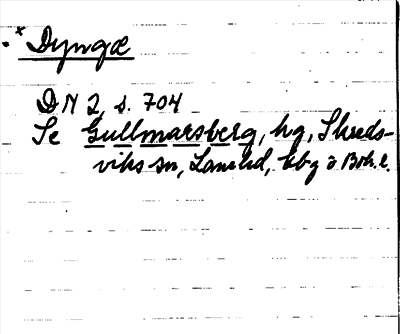 * Dyngæ
DN 2, s. 704
Se Gullmarsberg, hg, Skreds-
viks sn, Lane hd, Gbg o Boh. l.